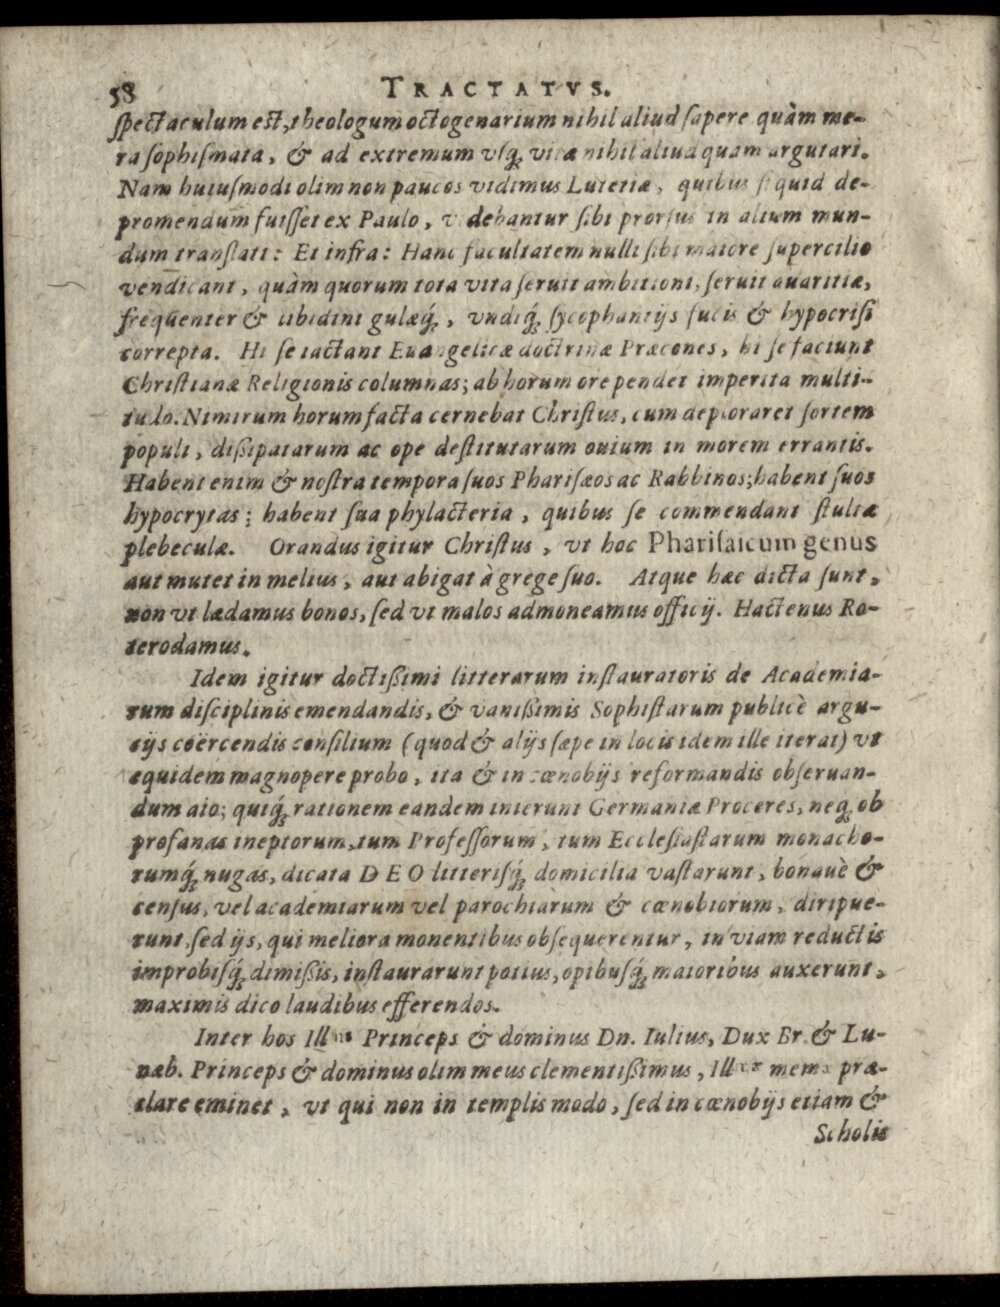 58 TRACTATVS.
ſpectaculum eſt, theologum octogenarium nihil aliud ſapere quàm me-
ra ſophiſmata, & ad extremum vſq́ȝ vitæ nihil aliud quam argutari.
Nam huiuſmodi olim non paucos vidimus Lutetiæ, quibus ſi quid de-
promendum fuiſſet ex Paulo, videbantur ſibi prorſus in alium mun-
dum tranſlati: Et infra: Hanc facultatem nulli ſibi maiore ſupercilio
vendicant, quàm quorum tota vita ſeruit ambitioni, ſeruit auaritiæ,
frequenter & libidini gulæq́ȝ, vndiq́ȝ ſycophantijs fucis & hypocriſi
correpta. Hi ſe iactant Euangelicæ doctrinæ Præcones, hi ſe faciunt
Chriſtianæ Religionis columnas; ab horum ore pendet imperita multi-
tudo. Nimirum horum facta cernebat Chriſtus, cum deploraret ſortem
populi, dißipatarum ac ope deſtitutarum ouium in morem errantis.
Habent enim & noſtra tempora ſuos Phariſæos ac Rabbinos; habent ſuos
hypocrytas; habent ſua phylacteria, quibus ſe commendant ſtultæ
plebeculæ. Orandus igitur Chriſtus, vt hoc Phariſaicum genus
aut mutet in melius, aut abigat à grege ſuo. Atque hæc dicta ſunt,
non vt lædamus bonos, ſed vt malos admoneamus officij. Hactenus Ro-
terodamus.
Idem igitur doctißimi litterarum inſtauratoris de Academia-
rum diſciplinis emendandis, & vanißimis Sophiſtarum publicè argu-
tijs coërcendis conſilium (quod & alijs ſæpe in locis idem ille iterat) vt
equidem magnopere probo, ita & in cœnobijs reformandis obſeruan-
dum aio; quiq́ȝ rationem eandem inierunt Germaniæ Proceres, neq́ȝ ob
profanas ineptorum, tum Profeſſorum, tum Eccleſiaſtarum monacho-
rumq́ȝ nugas, dicata DEO litteriſq́ȝ domicilia vaſtarunt, bonauè &
cenſus, vel academiarum vel parochiarum & cœnobiorum, diripue-
runt, ſed ijs, qui meliora monentibus obſequerentur, in viam reductis
improbiſq́ȝ dimißis, inſtaurarunt potius, opibuſq́ȝ maioribus auxerunt,
maximis dico laudibus efferendos.
Inter hos Ill<sup>mus</sup> Princeps & dominus Dn. Iulius, Dux Br. & Lu-
næb. Princeps & dominus olim meus clementißimus, Ill mem. præ-
clare eminet, vt qui non in templis modo, ſed in cœnobijs etiam &
Scholis